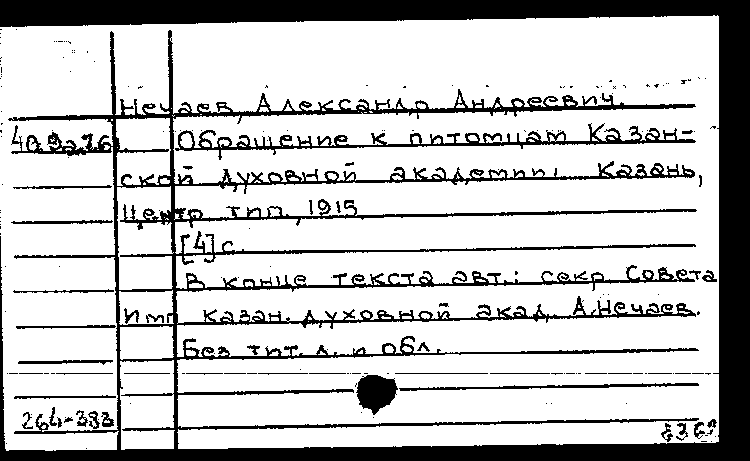 Нечаев, Александр Андреевич.
Обращение к питомцам Казан-
ской духовной академии. Казань,
Центр тип., 1915
[4] с.
В конце текста авт.: секр Совета
Имп казан. духовной акад. А.Нечаев.
Без тит. л. и обл.
264-383